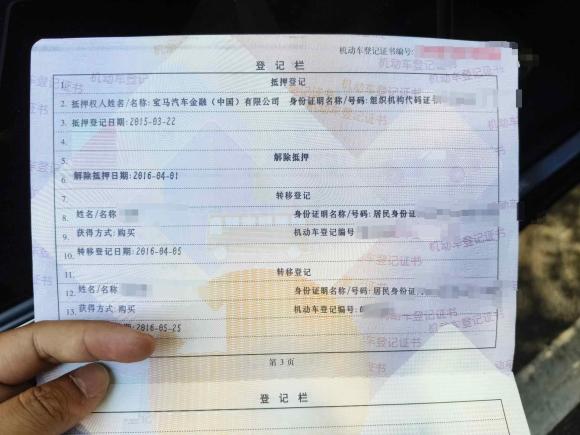 机动车登记证书编号:
登记栏
抵押登记
2. 抵押权人姓名/名称: 宝马汽车金融（中国）有限公司 身份证明名称/号码: 组织机构代码证
3. 抵押登记日期: 2015-03-22
4.
5. 解除抵押
6. 解除抵押日期: 2016-04-01
7. 转移登记
8. 姓名/名称 身份证明名称/号码: 居民身份证
9. 获得方式: 购买 机动车登记编号
10. 转移登记日期: 2016-04-05
11. 转移登记
12. 姓名/名称 身份证明名称/号码: 居民身份证
13. 获得方式: 购买 机动车登记编号:
2016-05-25
第 3 页
登记栏